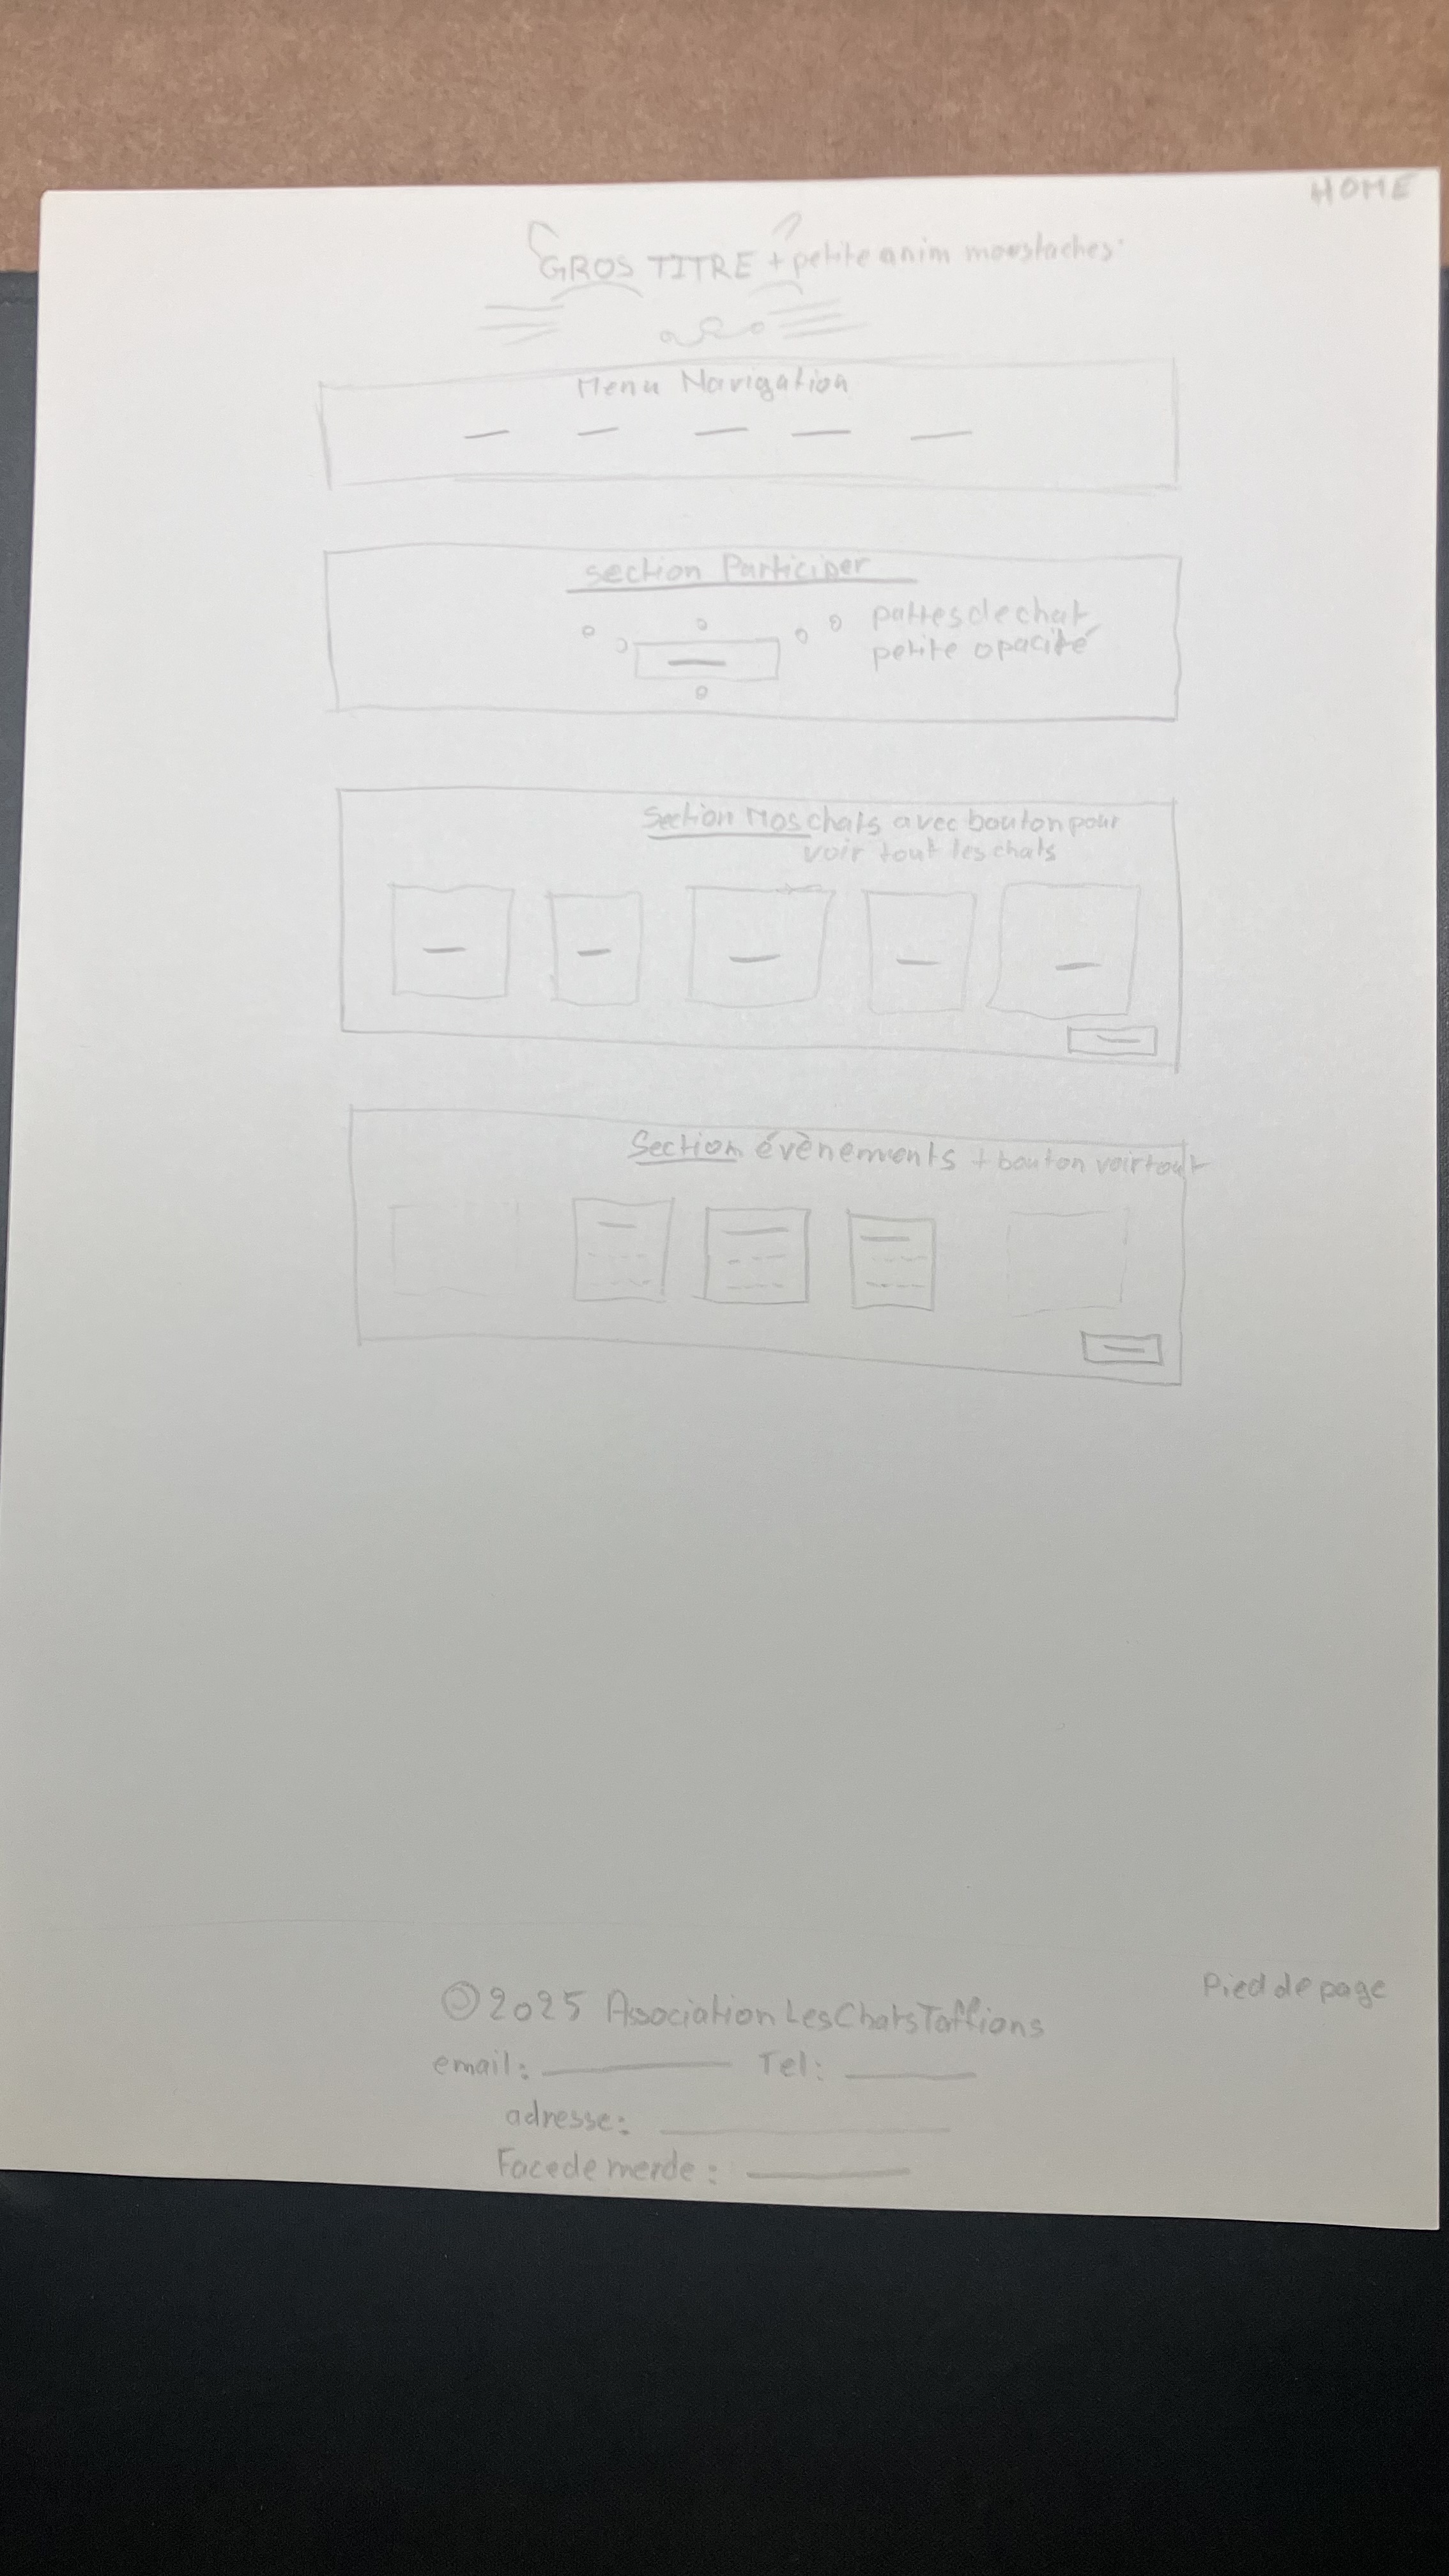 HOME
GROS TITRE + petite anim moustaches
Menu Navigation
section Participer
pattes de chat
petite opacité
Section Nos chats avec bouton pour
voir tout les chats
Section évènements + bouton voir tout
Pied de page
©2025 Association LesChatsTaffions
email: Tel:
adresse:
Facedemerde: